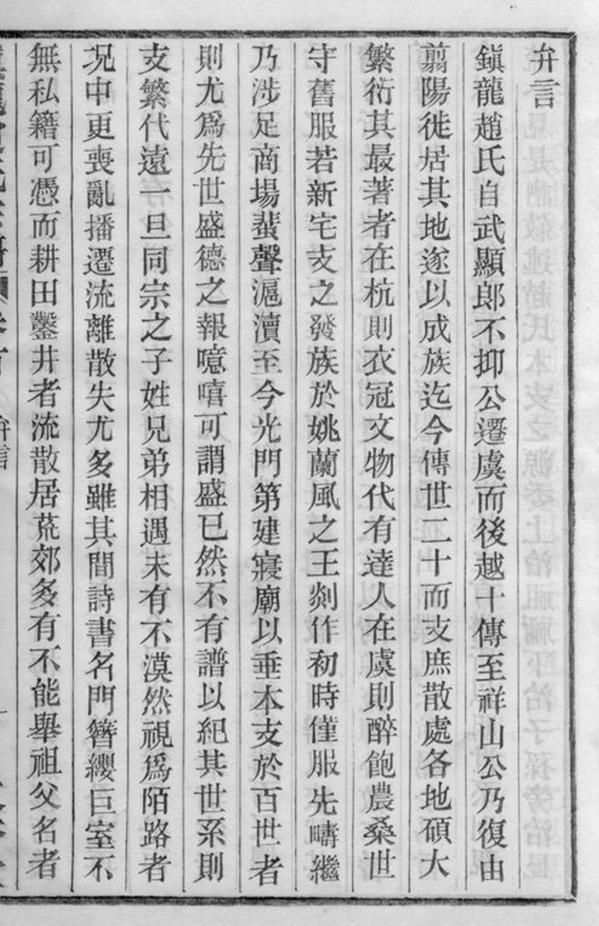 弁言
鎭龍趙氏自武顯郎不抑公遷虞而後越十傳至祥山公乃復由
翦陽徙居其地遂以成族迄今傳世二十而支庶散處各地碩大
繁衍其最著者在杭則衣冠文物代有達人在虞則醉飽農桑世
守舊服若新宅支之發族於姚蘭風之王剡作初時僅服先疇繼
乃涉足商場蜚聲滬瀆至今光門第建寢廟以垂本支於百世者
則尤爲先世盛德之報噫嘻可謂盛已然不有譜以紀其世系則
支繁代遠一旦同宗之子姓兄弟相遇未有不漠然視爲陌路者
况中更喪亂播遷流離散失尤多雖其間詩書名門簪纓巨室不
無私籍可憑而耕田鑿井者流散居荒郊多有不能舉祖父名者
弁言
一